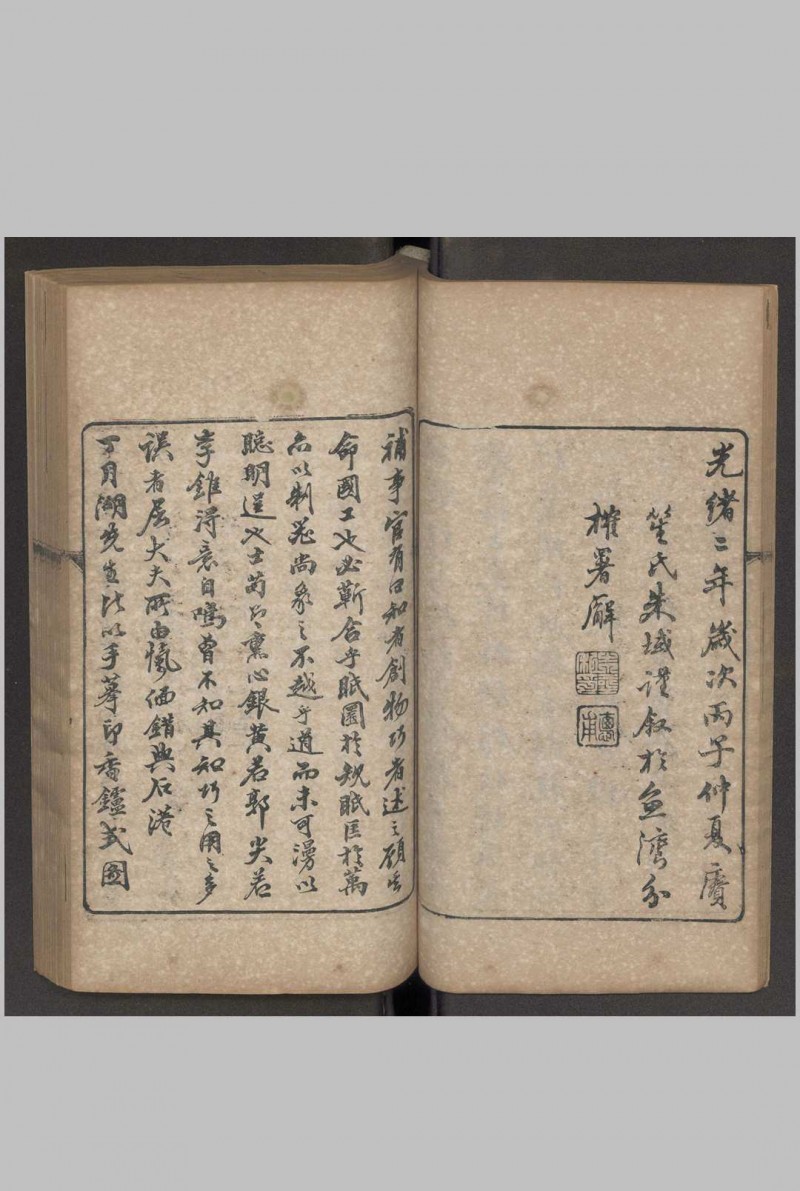 光緒二年歲次丙子仲夏賡
笙氏朱域謹叙於魚灣分
榷署廨
補事官有曰知者創物巧者述之顧古
命國工也必蘄合乎眂圜於規眂匡於萬
而以制器尚象之不越乎道而未可漫以
聰明逞也士苟名熏心銀黃若郭尖若
李錐得意自鳴曾不知其知巧之用之多
誤者屈大夫所由慨偭錯與石港
丁月湖先生以手摹印香鑪式圖